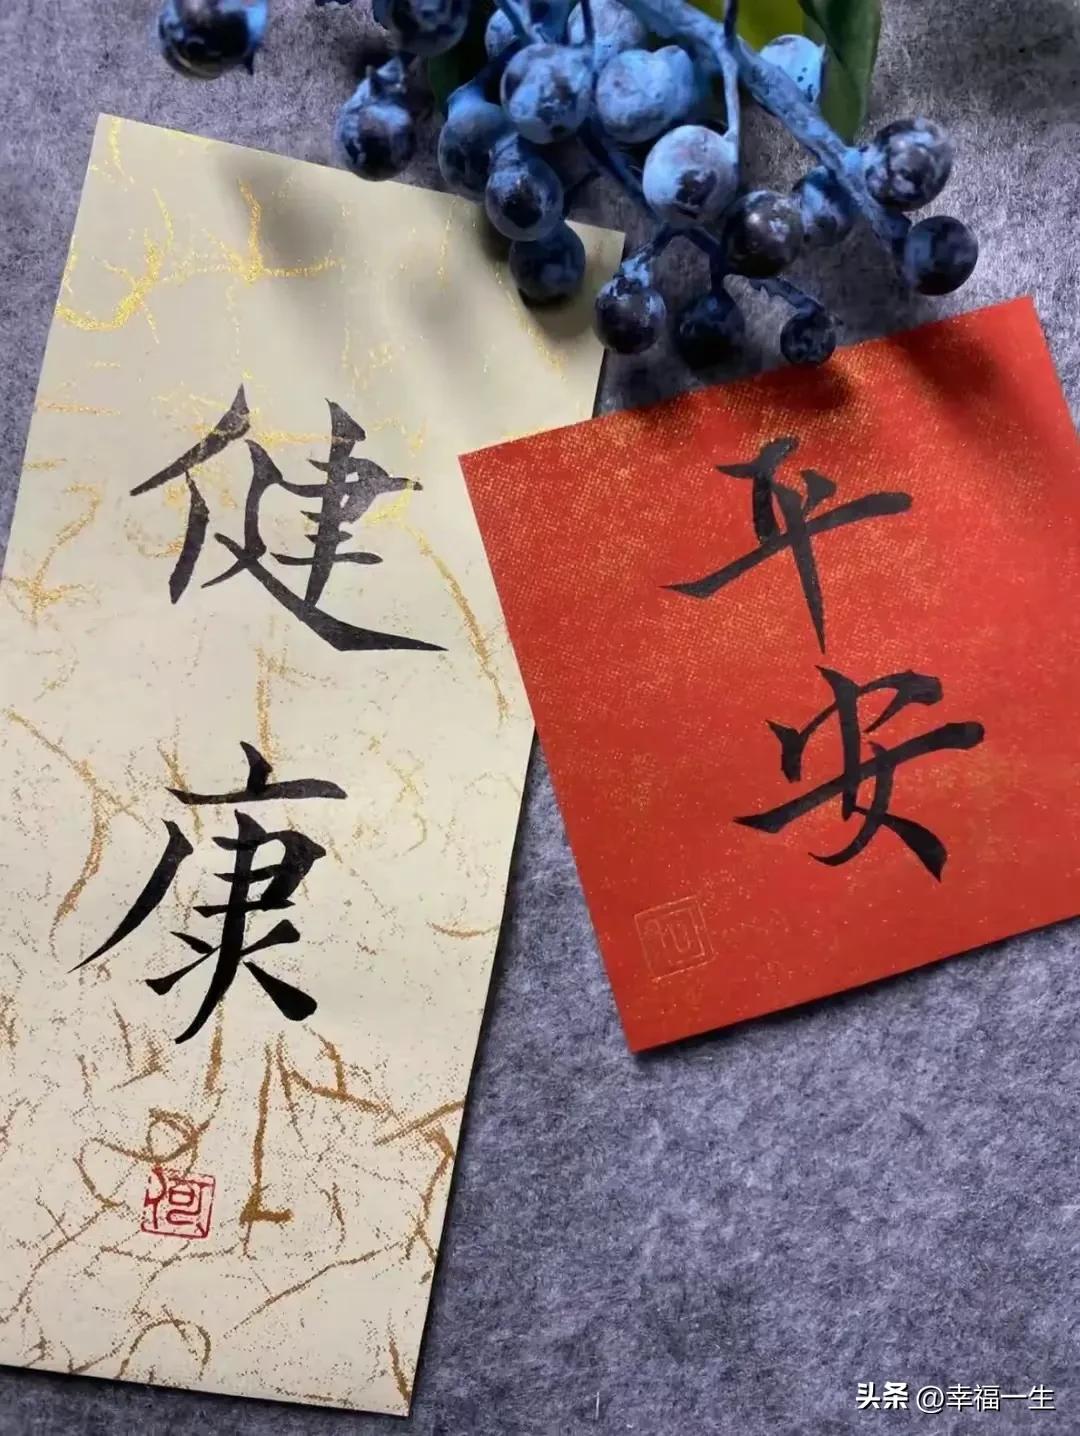 健康
平安
何
何
头条 @幸福一生